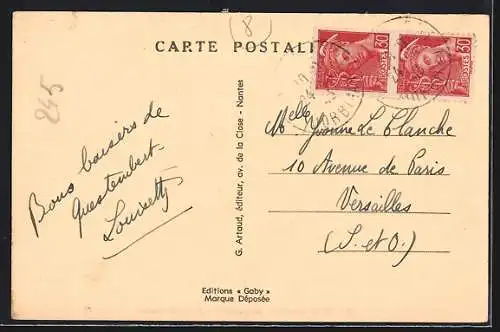 (8)
CARTE POSTALE
30
POSTES
30
POSTES
MORBIHAN
245
Bons baisers de
Questembert
G. Artaud, éditeur, av. de la Close - Nantes
Melle Yvonne Le Clanche
10 Avenue de Paris
Versailles
(S. et O.)
Editions « Gaby »
Marque Déposée